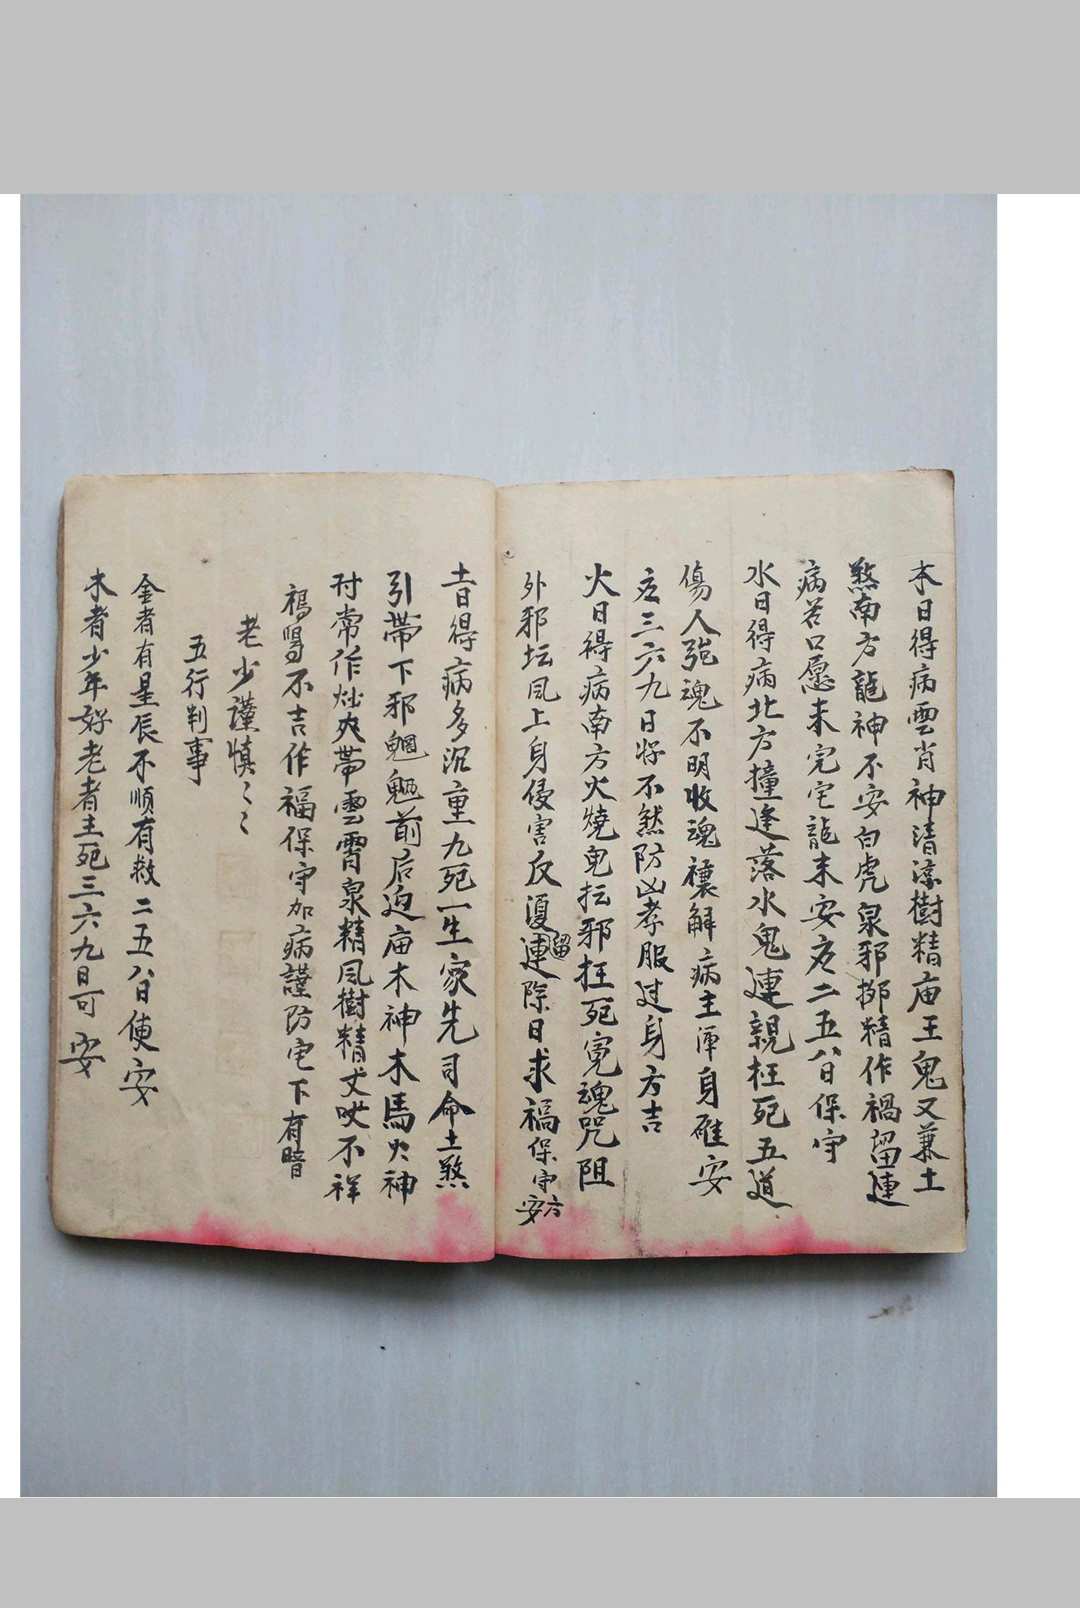 木日得病雲肖神清㵒樹精庙王鬼又兼土
煞南方龍神不安白虎泉邪挷精作禍留連
病若口愿未完宅龍未安在二五八日保守
水日得病北方撞逢落水鬼連親枉死五道
傷人魂不明收魂禳解病主渾身难安
在三六九日好不然防凶孝服过身方吉
火日得病南方火燒鬼抎邪枉死冤魂咒阻
外邪坛凨上身侵害反復連留除日求福保守方安
土日得病多沉重九死一生家先司命土煞
引帶下邪魍魎前后迎庙木神木馬火神
时常作帶雲霄泉精凨樹精丈吠不祥
不吉作福保守加病謹防宅下有暗
老少謹慎〻〻
五行判事
金者有星辰不順有救二五八日使安
木者少年好老者主死三六九日可安